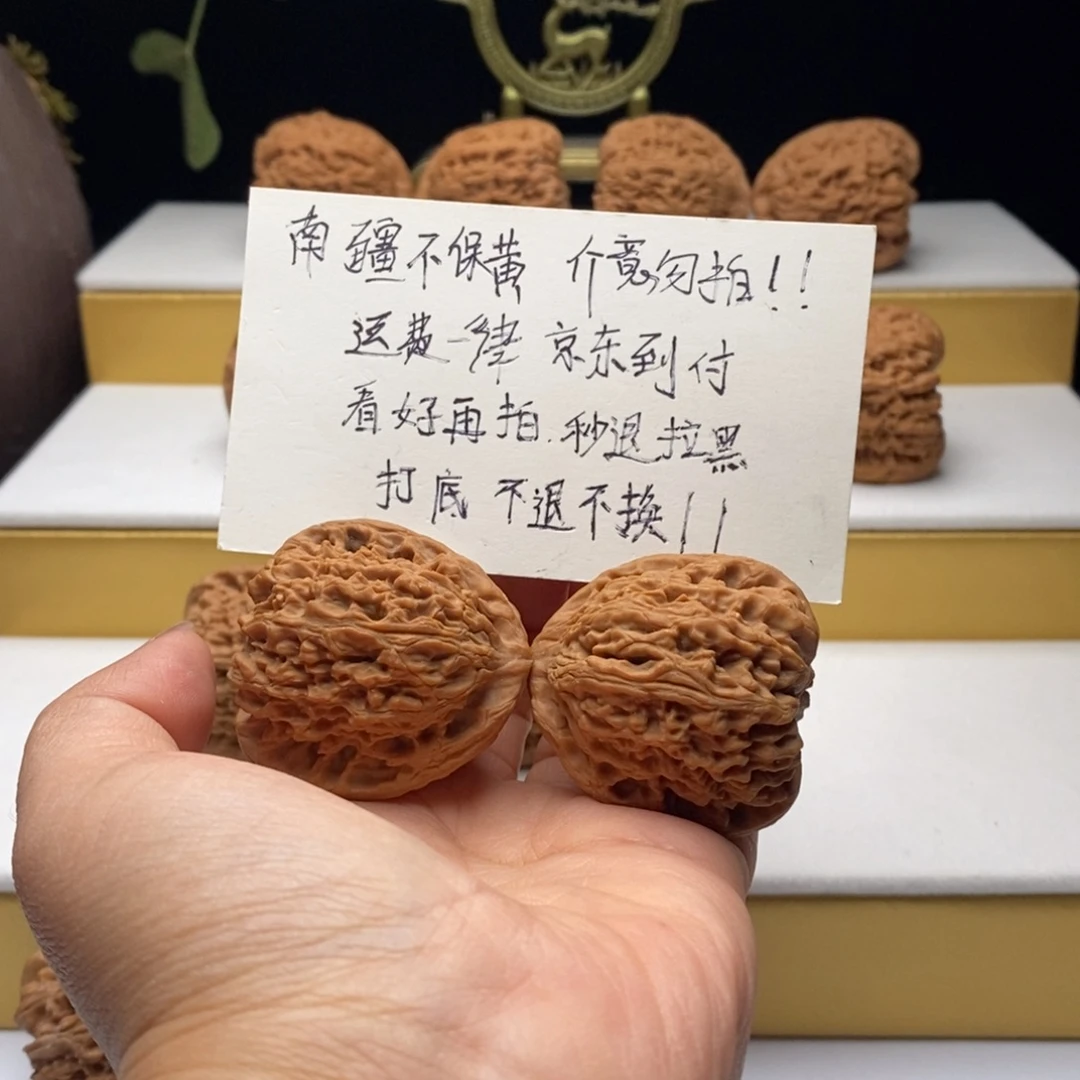 南疆不保黄 介意勿拍！！
运费一律 京东到付
看好再拍.秒退拉黑
打底 不退不换！！